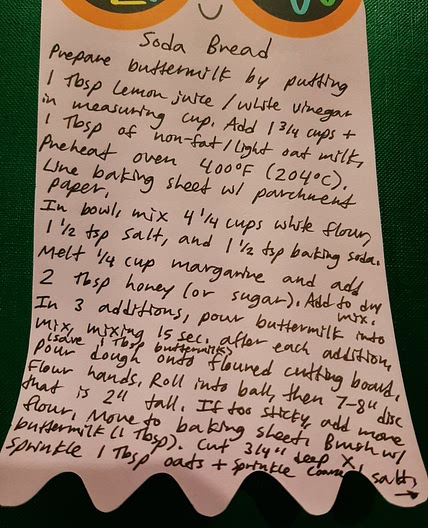 Soda Bread
Prepare buttermilk by putting
1 Tbsp lemon juice / white vinegar
in measuring cup. Add 1 3/4 cups +
1 Tbsp of non-fat / light oat milk,
Preheat oven 400°F (204°C).
Line baking sheet w/ parchment
paper.
In bowl, mix 4 1/4 cups white flour,
1 1/2 tsp salt, and 1 1/2 tsp baking soda.
Melt 1/4 cup margarine and add
2 Tbsp honey (or sugar). Add to dry
mix.
In 3 additions, pour buttermilk into
mix, mixing 15 sec. after each addition,
(save 1 Tbsp buttermilk)
Pour dough onto floured cutting board.
Flour hands. Roll into ball, then 7-8" disc
that is 2" tall. If too sticky, add more
flour. Move to baking sheet. Brush w/
buttermilk (1 Tbsp). Cut 3/4" deep X,
sprinkle 1 Tbsp oats + sprinkle coarse salt,
→